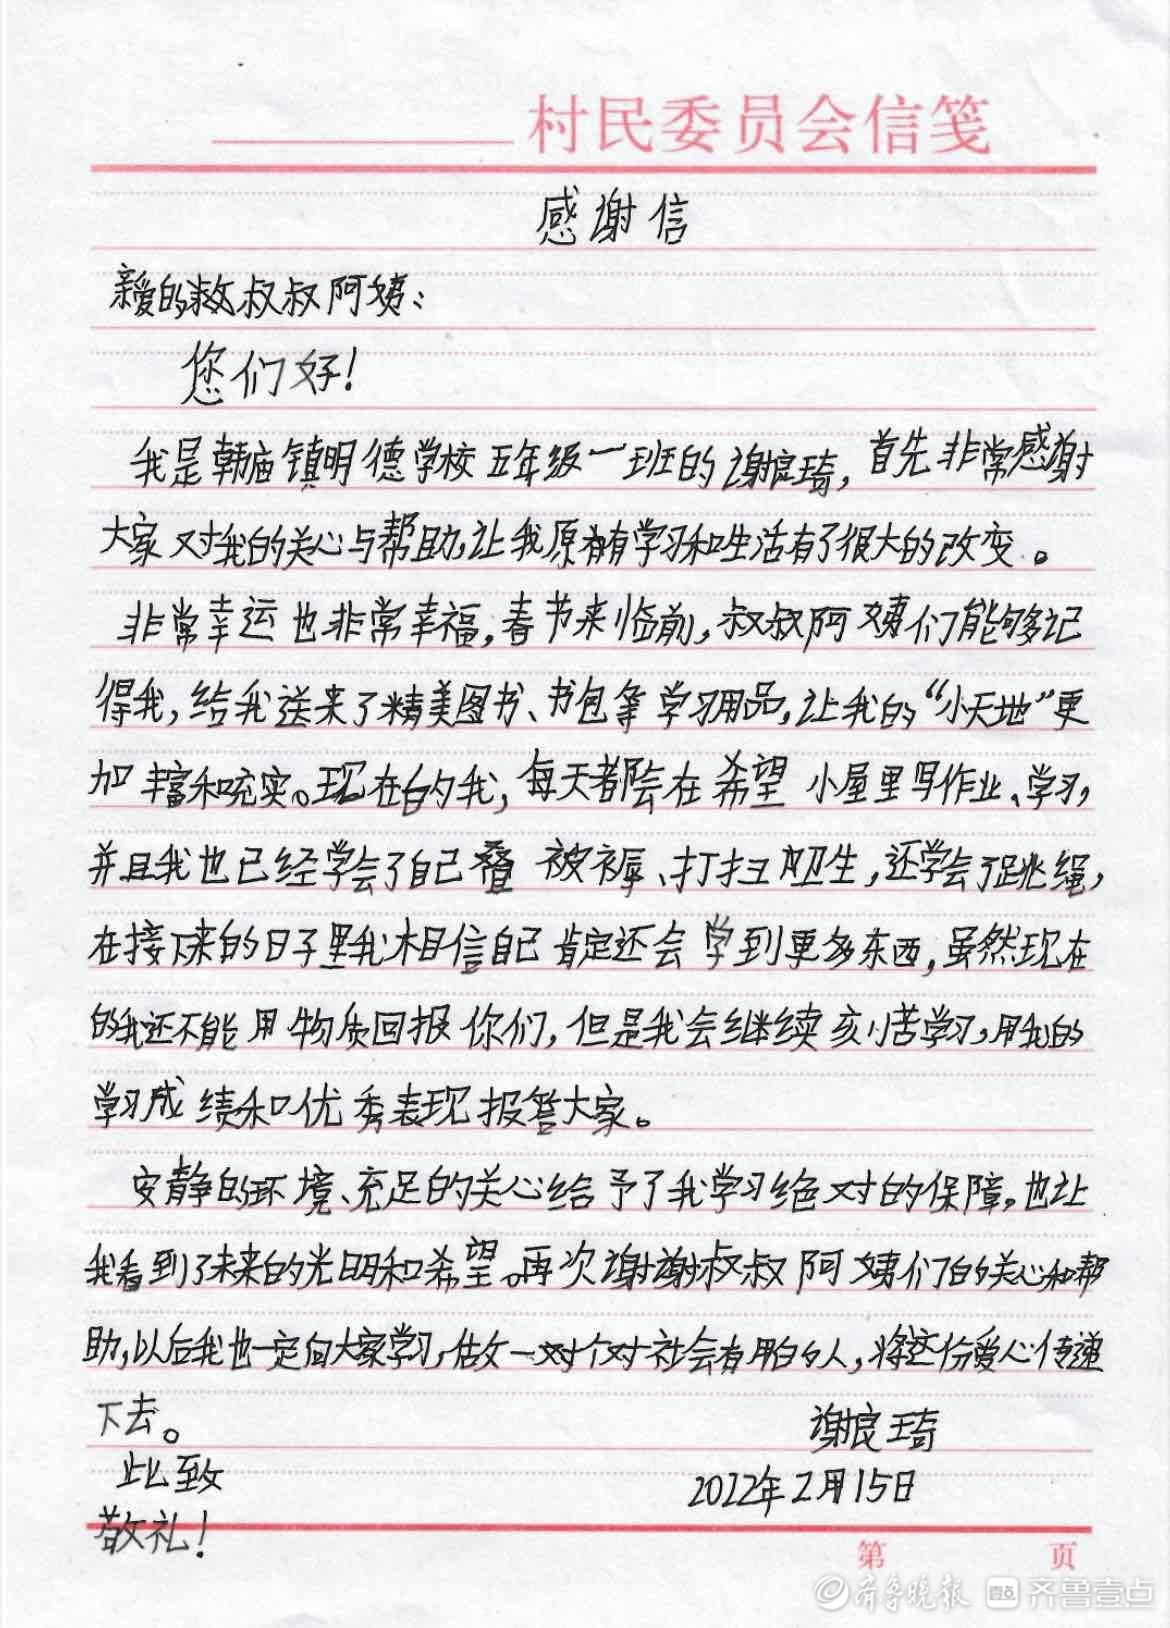 村民委员会信笺
感谢信
亲爱的救叔叔阿姨：
您们好！
我是韩庙镇明德学校五年级一班的谢良琦，首先非常感谢
大家对我的关心与帮助，让我原有学习和生活有了很大的改变。
非常幸运也非常幸福，春节来临前，叔叔阿姨们能够记
得我，给我送来了精美图书、书包等学习用品，让我的“小天地”更
加丰富和充实。现在的我，每天都会在希望小屋里写作业、学习，
并且我也已经学会了自己叠被褥、打扫卫生，还学会了跳绳，
在接下来的日子里我相信自己肯定还会学到更多东西，虽然现在
的我还不能用物质回报你们，但是我会继续刻苦学习，用我的
学习成绩和优秀表现报答大家。
安静的环境、充足的关心给予了我学习绝对的保障。也让
我看到了未来的光明和希望。再次谢谢叔叔阿姨们的关心和帮
助，以后我也一定向大家学习，做一对个对社会有用的人，将这份爱心传递
下去。
谢良琦
此致
2022年2月15日
敬礼！
第 页
齐鲁晚报 齐鲁壹点